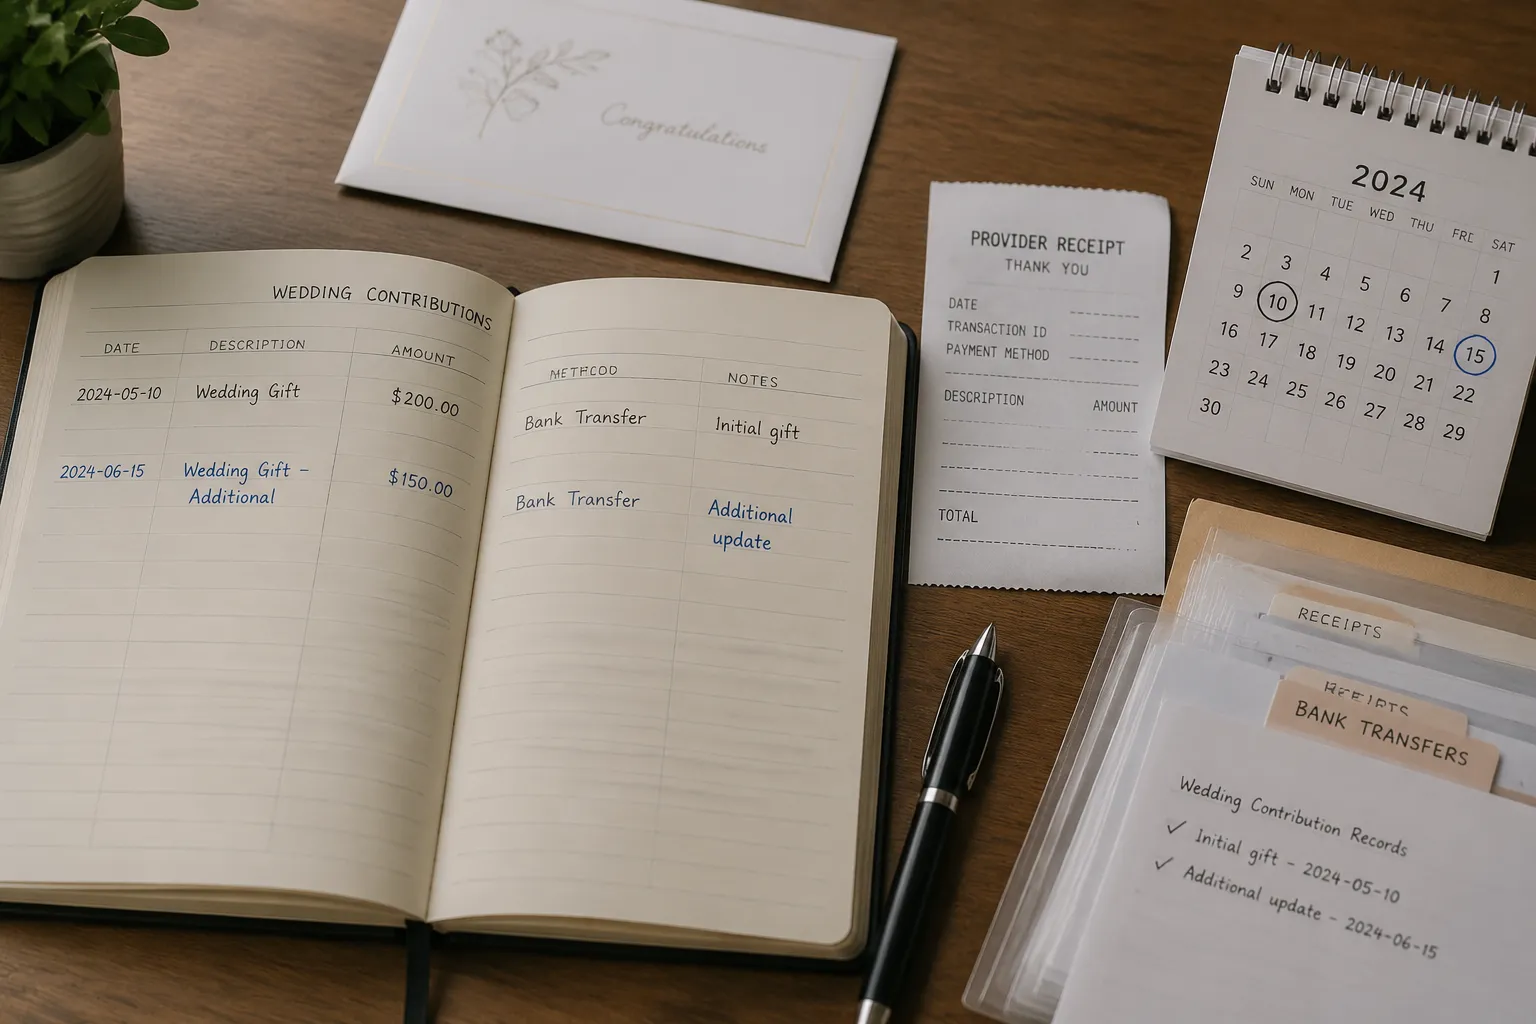 Congratulations
WEDDING CONTRIBUTIONS
DATE DESCRIPTION AMOUNT
2024-05-10 Wedding Gift $200.00
2024-06-15 Wedding Gift – $150.00
Additional
METFCOD NOTES
Bank Transfer Initial gift
Bank Transfer Additional
update
PROVIDER RECEIPT
THANK YOU
DATE
TRANSACTION ID
PAYMENT METHOD
DESCRIPTION AMOUNT
TOTAL
2024
SUN MON TUE WED THU FRI SAT
1
2 3 4 5 6 7 8
9 10 11 12 13 14 15
16 17 18 19 20 21 22
23 24 25 26 27 28 29
30
RECEIPTS
RECEIPTS
BANK TRANSFERS
Wedding Contribution Records
✓ Initial gift – 2024-05-10
✓ Additional update – 2024-06-15